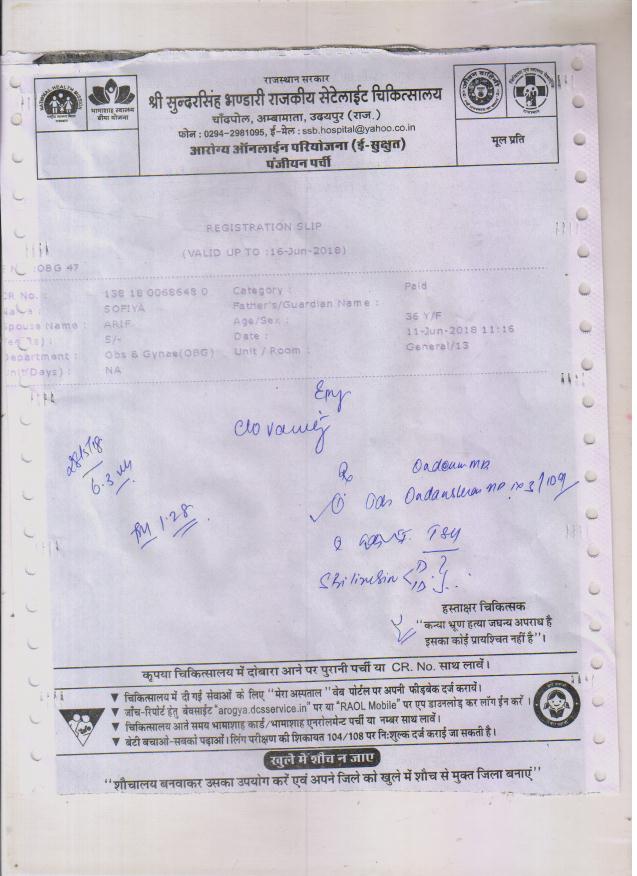 राजस्थान सरकार
श्री सुन्दरसिंह भण्डारी राजकीय सेटेलाईट चिकित्सालय
चाँदपोल, अम्बामाता, उदयपुर (राज.)
फोन : 0294-2981095, ई-मेल : ssb.hospital@yahoo.co.in
आरोग्य ऑनलाईन परियोजना (ई-सुश्रुत)
पंजीयन पर्ची
NATIONAL HEALTH MISSION
भामाशाह स्वास्थ्य
बीमा योजना
मूल प्रति
REGISTRATION SLIP
(VALID UP TO :16-Jun-2018)
OBG 47
CR No. : 138 18 0068648 0 Category : Paid
SOFIYA Father's/Guardian Name :
Spouse Name : ARIF Age/Sex : 36 Y/F
5/- Date : 11-Jun-2018 11:16
Department : Obs & Gynae(OBG) Unit / Room : General/13
NA
c/o
28/5/18
6.3
1.28
Rx
TSH
S Bilirubin < D ID
हस्ताक्षर चिकित्सक
"कन्या भ्रूण हत्या जघन्य अपराध है
इसका कोई प्रायश्चित नहीं है"।
कृपया चिकित्सालय में दोबारा आने पर पुरानी पर्ची या CR. No. साथ लावें।
▼ चिकित्सालय में दी गई सेवाओं के लिए "मेरा अस्पताल" वेब पोर्टल पर अपनी फीडबेक दर्ज करायें।
▼ जाँच-रिपोर्ट हेतु बेवसाईट "arogya.dcsservice.in" पर या "RAOL Mobile" पर एप डाउनलोड़ कर लॉग ईन करें।
▼ चिकित्सालय आते समय भामाशाह कार्ड/भामाशाह एनरोलमेण्ट पर्ची या नम्बर साथ लावें।
▼ बेटी बचाओ-सबको पढ़ाओ। लिंग परीक्षण की शिकायत 104/108 पर नि:शुल्क दर्ज कराई जा सकती है।
खुले में शौच न जाए
"शौचालय बनवाकर उसका उपयोग करें एवं अपने जिले को खुले में शौच से मुक्त जिला बनाएं"